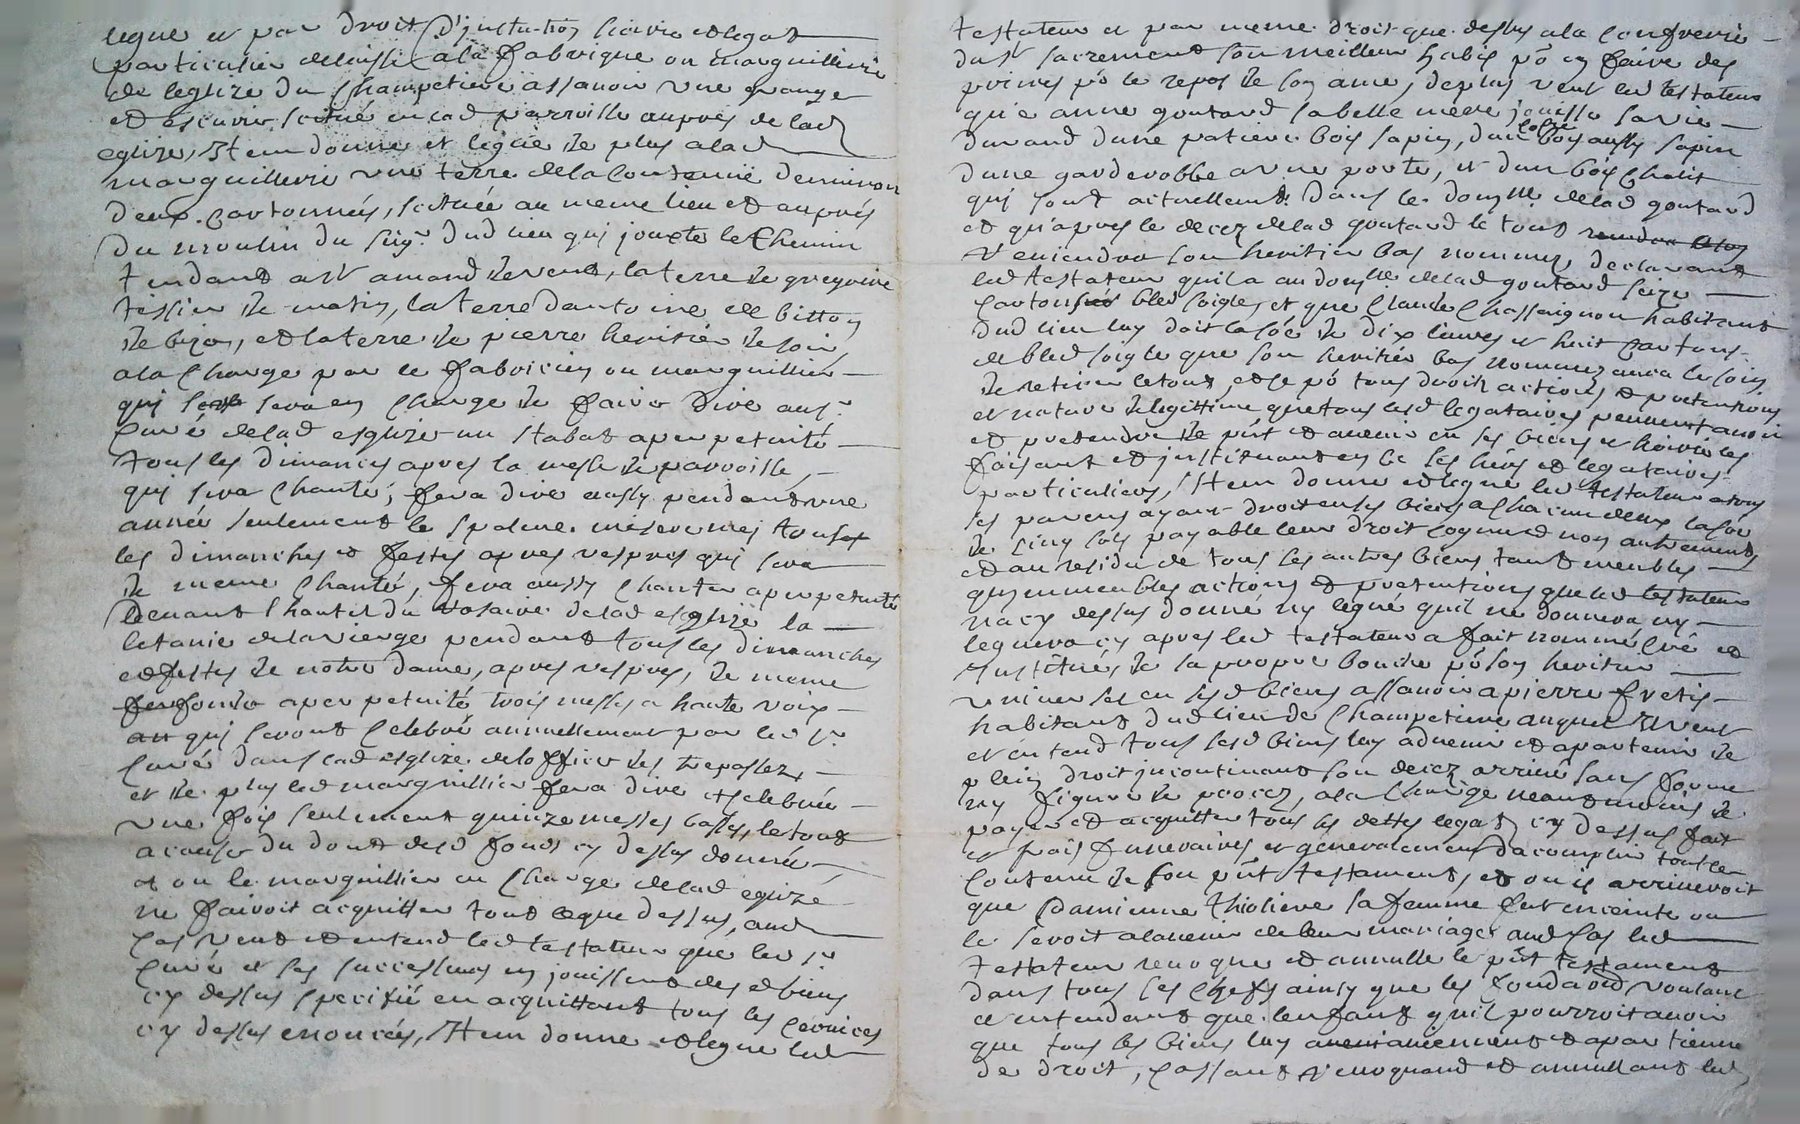 legue et par droit d'justution hoirie et legat
particulier delaisse a la fabrique ou marguillerie
de leglize du Champetiere assavoir une grange
et escurie scitué en lad parroisse aupres de lad
eglize, Item donne et legue de plus a lad
marguillerie une terre de la contenue denviron
deux cartonnées, scituée au meme lieu et aupres
du moulin du sigr dud lieu qui jouxte le Chemin
tendant a st amand de vent, la terre de gregoire
tissier de matin, la terre dantoine de bitton
de bize, et la terre de pierre heritier de soir
a la Charge par le fabricien ou marguillier
qui sera en Charge de faire dire au sr
Curé de lad esglize un stabat a perpetuité
tous les dimances apres la messe de parroisse,
qui sera Chanté, fera dire aussy pendant une
année seulement le spalme misereres tous
les dimanches et festes apres vespres qui sera
de meme Chanté, fera aussy Chanter a perpetuité
devant lhautel du rosaire de lad esglize la
letanie de la vierge pendant tous les dimanches
et festes de notre dame, apres vespres, de meme
a perpetuité trois messes a haute voix
qui seront Celebré annuellement par led sr
Curé dans lad esglize de loffice des trepassez,
et de plus led marguillier fera dire et celebrer
une fois seulement quinze messes basses, le tout
a cause du dont desd fonds cy dessus donnés,
et ou le marguillier en Charge de lad eglize
ne fairoit acquitter tout ce que dessus, aud
Cas veut et entend led testateur que led sr
Curé et ses successeurs en jouissent desd biens
cy dessus specifié en acquittant tous les services
cy dessus enoncés, Item donne et legue led
testateur et par meme droit que dessus a la Confrerie
du st sacrement son meilleur habis po en faire des
prieres po le repos de son ame, de plus veut led testateur
que anne goutard sa belle mere jouisse sa vie
durand dune patiere bois sapin, dun coffre bois aussy sapin
dune garderobbe a une porte, et dun bois Chalit
qui sont actuellemt dans le domlle de lad goutard
et quapres le decez de lad goutard le tout
reviendra son heritier bas nommez declarant
led testateur quil a au domlle de lad goutard seize
cartons bled soigle, et que Claude Chassaignon habitant
dud lieu luy doit la soe de dix livres et huit cartons
de bled soigle que son heritier bas nommez aura le soin
de retirer le tout, et ce po tous droitz actions et pretentions
et nature de legittime que tous lesd legataires peuvent avoir
et pretendre de pnt et avenir en ses biens et hoiries les
faisant et jnstituant en ce ses hers et legataires
particuliers, Item donne et legue led testateur a tous
ses parens ayant droit en ses biens a Chacun deux la soe
de Cinq sols payable leur droit cognu et non autrement,
et au residu de tous les autres biens tant meubles
qu immeubles actions et pretentions que led testateur
na cy dessus donné ny legué quil ne donnera ny
leguera cy apres led testateur a fait nommé Creé et
Institué, de sa propre bouche po son heritier
universel en sesd biens assavoir a pierre fretis
habitant dud lieu de Champetiere auquel il veut
et entend tous sesd biens luy advenir et apartenir de
plein droit jncontinant son decez arrivé sans forme
ny figure de procez, a la Charge neantmoins de
payer et acquitter tous les dettes legatz cy dessus fait
et frais funeraires et generalement dacomplir tout le
Contenu de son pnt testament, et ou il arriveroit
que Damienne thioliere sa femme fut enceinte ou
le seroit a lavenir de leur mariage aud Cas led
testateur revoque et annulle le pnt testament
dans tous ses Chefs ainsy que les voulant
et entendant que lenfant quil pourroit avoir
que tous ses biens luy et apartienne
de droit, Cassant revoquand et annullant led